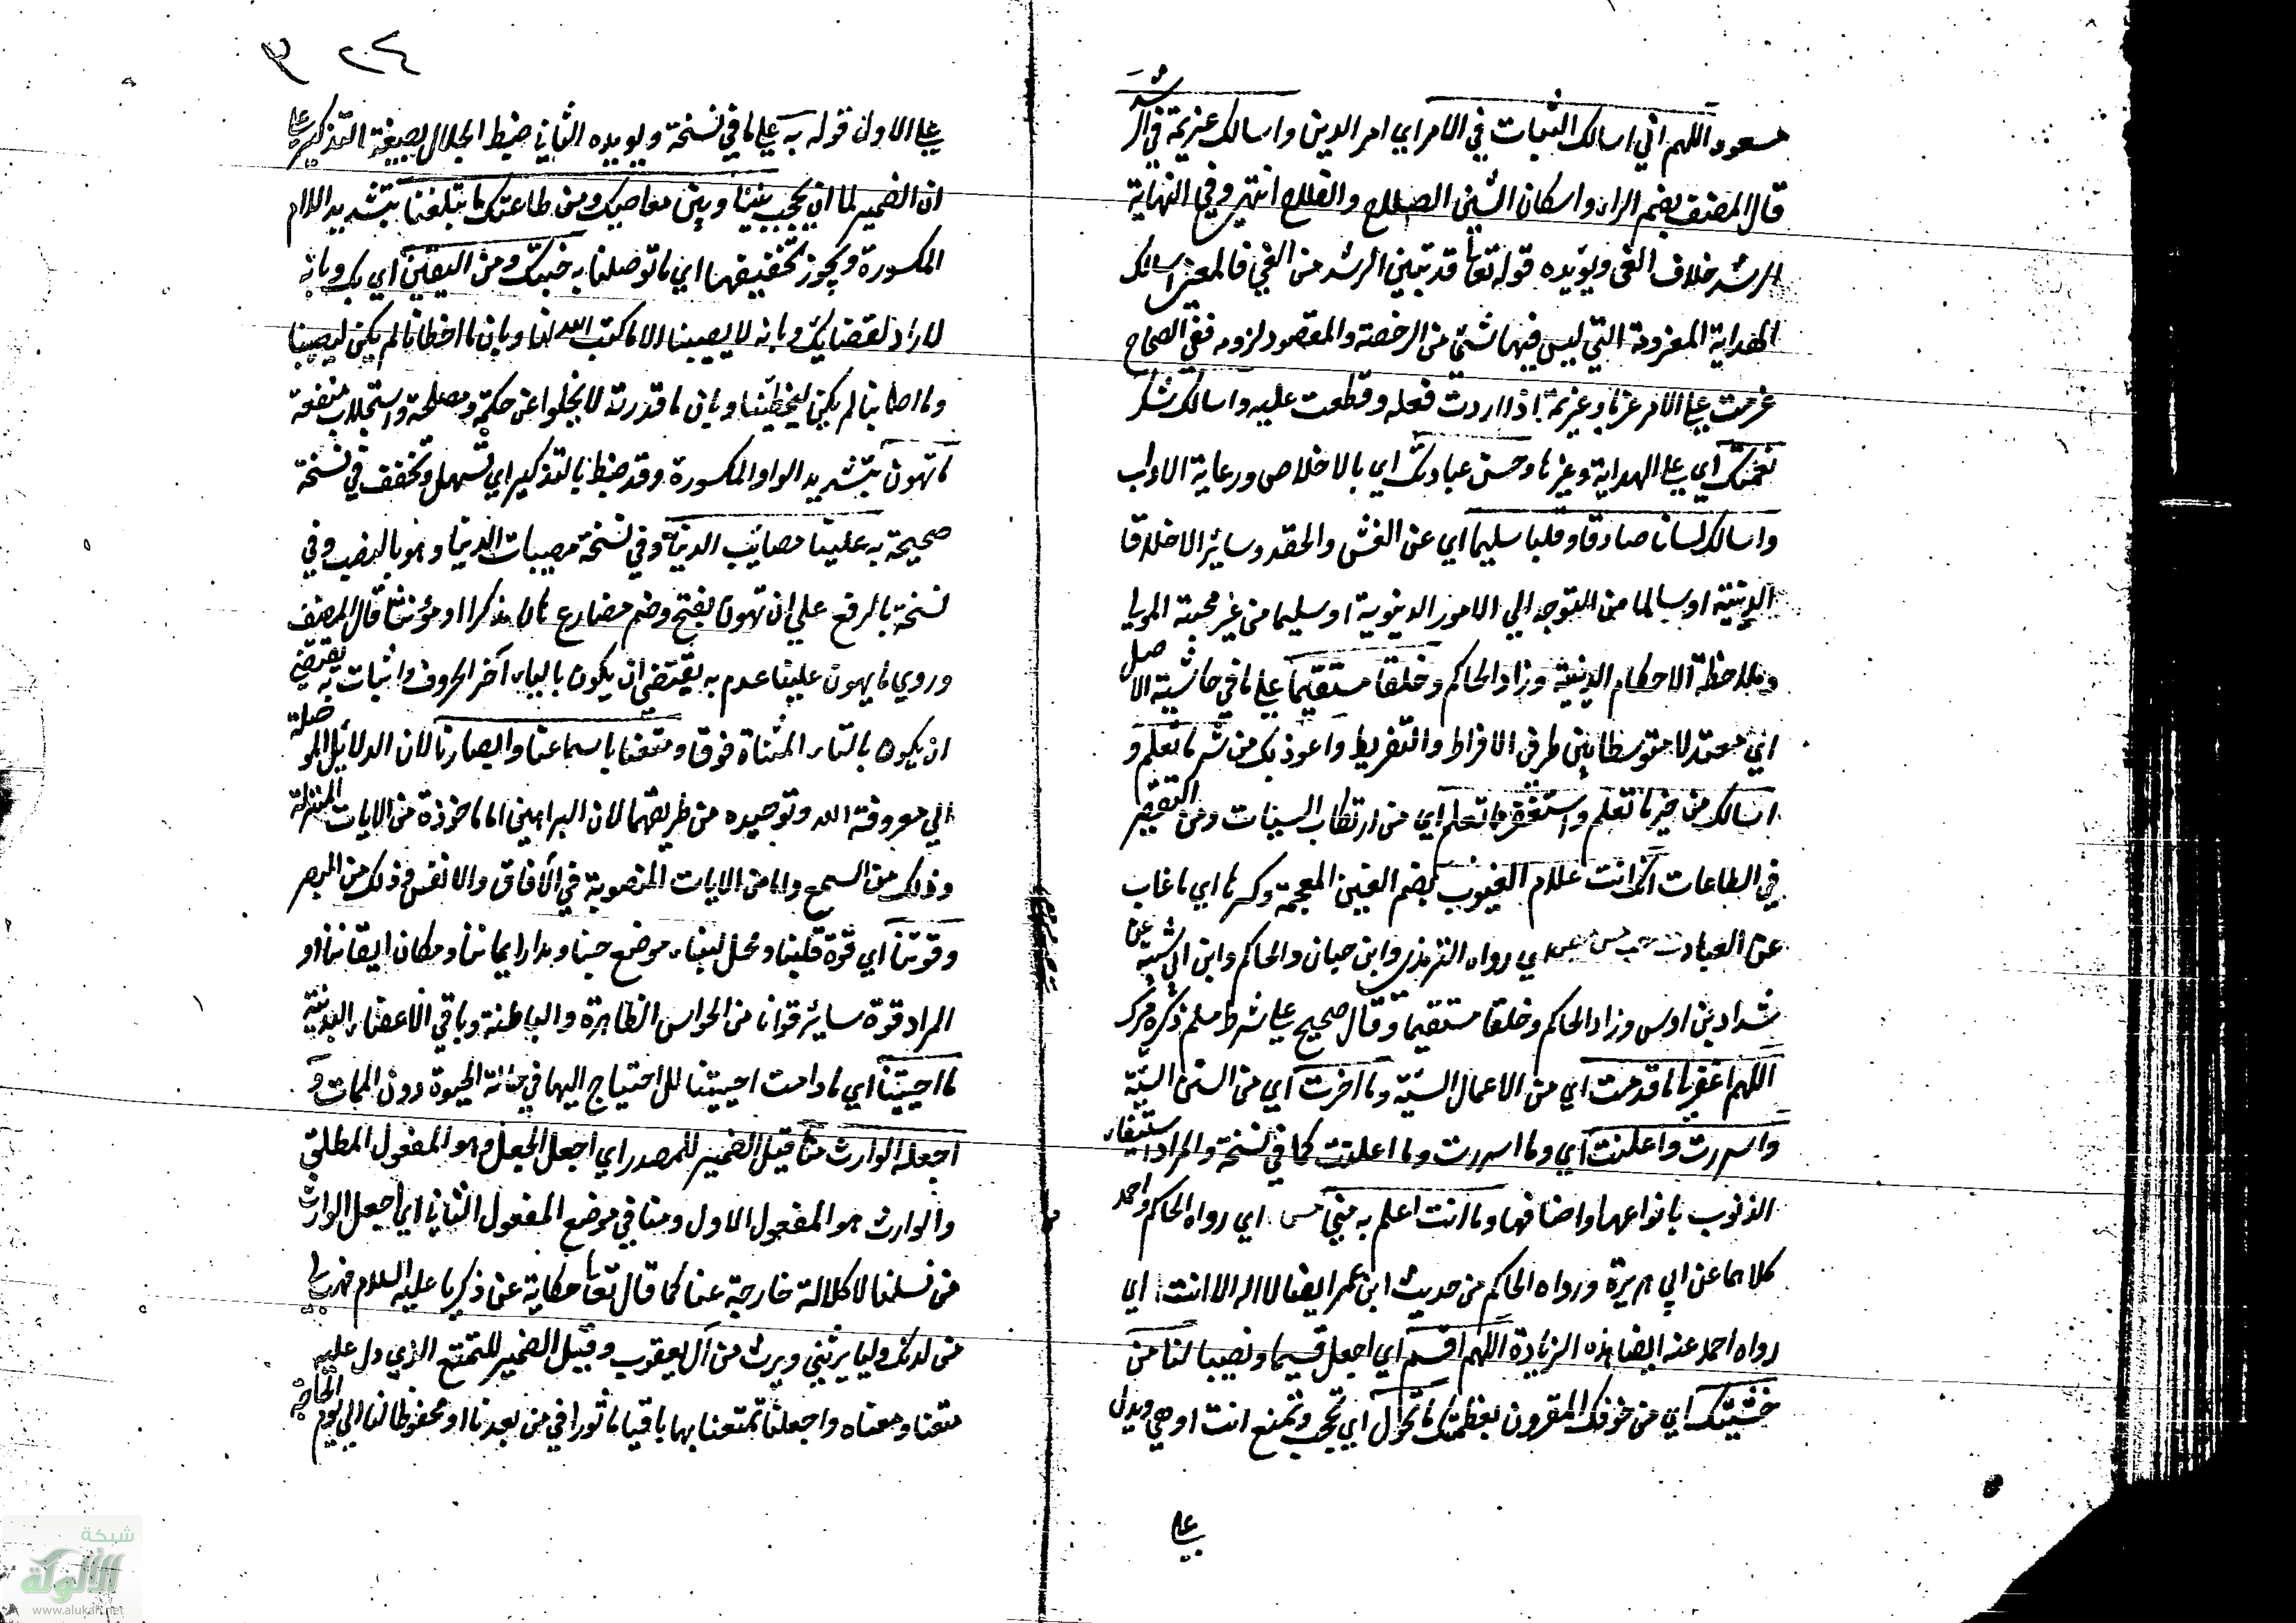 مسعود اللهم اني اسالك الثبات في الامر اي امر الدين واسالك عزيمة في الرشد
قال المصنف بضم الراء واسكان الشين الصلاح والفلاح انتهى وفي النهاية
الرشد خلاف الغي ويؤيده قوله تعا قد تبين الرشد من الغي فالمعنى اسالك
الهداية المعزومة التي ليس فيها شئ من الرخصة والمقصود لزومه ففي الصحاح
عزمت على الامر عزما وعزيمة اذا اردت فعله وقطعت عليه واسالك شكر
نعمتك اي على الهداية وغيرها وحسن عبادتك اي بالاخلاص ورعاية الاداب
واسالك لسانا صادقا وقلبا سليما اي عن الغش والحقد وسائر الاخلاق
الدنيئة او سالما من التوجه الي الامور الدنيوية او سليما من غير محبة المولى
وملاحظة الاحكام الدينية وزاد الحاكم وخلقا مستقيما على ما في حاشية الاصل
اي معتدلا متوسطا بين طرفي الافراط والتفريط واعوذ بك من شر ما تعلم و
اسالك من خير ما تعلم واستغفر مما تعلم اي من ارتكاب السيئات ومن التقصير
في الطاعات انك انت علام الغيوب بضم الغين المعجمة وكسرها اي ما غاب
عن العباد ت حب مس مص اي رواه الترمذي وابن حبان والحاكم وابن ابي شيبة عن
شداد بن اوس وزاد الحاكم وخلقا مستقيما وقال صحيح على شرط مسلم ذكره ميرك
اللهم اغفر لي ما قدمت اي من الاعمال السيئة وما اخرت اي من السنن السيئة
واسررت واعلنت اي وما اسررت وما اعلنت كما في نسخة والمراد استيفاء
الذنوب بانواعها واصنافها وما انت اعلم به مني مس اي رواه الحاكم واحمد
كلاهما عن ابي هريرة ورواه الحاكم من حديث ابن عمر ايضا لا اله الا انت ا اي
رواه احمد عنه ايضا هذه الزيادة اللهم اقسم اي اجعل قسيما ونصيبا لنا من
خشيتك اي من خوفك المقرون بعظمتك ما تحول اي تحجب وتمنع انت او هي ويدل
على
٢٠٤ ٣
على الاول قوله به على ما في نسخة ويويده الثاني ضبط الجلال بصيغة التذكير على
ان الضمير لما اي يحجب بيننا وبين معاصيك ومن طاعتك ما تبلغنا بتشديد اللام
المكسورة ويجوز تخفيفها اي ما توصلنا به جنتك ومن اليقين اي بك وبانه
لا راد لقضائك وبانه لا يصيبنا الا ما كتب الله لنا وبان ما اخطانا لم يكن ليصيبنا
وما اصابنا لم يكن ليخطئنا وبان ما قدرته لا يخلوا عن حكمة ومصلحة واستجلاب منفعة
ما تهون بتشديد الواو المكسورة وقد ضبط بالتذكير اي تسهل وتخفف في نسخة
صحيحة به علينا مصائب الدنيا وفي نسخة مصيبات الدنيا وهو بالنصب وفي
نسخة بالرفع على ان تهون بفتح وضم مضارع هان مذكرا او مؤنثا قال المصنف
وروي ما يهون علينا عدم به يقتضي ان يكون بالياء آخر الحروف واثبات به يقتضي
ان يكون بالتاء المثناة فوق ومتعنا باسماعنا وابصارنا لان الدلائل الموصلة
الي معروفة الله وتوحيده من طريقهما لان البراهين اما ماخوذة من الايات المنزلة
وذلك من السمع واما من الايات المنصوبة في الآفاق والانفس وذلك من البصر
وقوتنا اي قوة قلبنا ومحل لبنا موضع حبنا ومدار ايماننا ومكان ايقاننا او
المراد قوة سائر قوانا من الحواس الظاهرة والباطنة وباقي الاعضاء البدنية
ما احييتنا اي ما دامت احييتنا للاحتياج اليها في حالة الحيوة دون الممات و
اجعله الوارث منا قيل الضمير للمصدر اي اجعل الجعل وهو المفعول المطلق
والوارث هو المفعول الاول ومنا في موضع المفعول الثاني اي اجعل الوارث
من نسلنا لا كلالة خارجة عنا كما قال تعا حكاية عن زكريا عليه السلام فهب لي
من لدنك وليا يرثني ويرث من آل يعقوب وقيل الضمير للتمتع الذي دل عليه
متعنا ومعناه واجعل تمتعنا بها باقيا ماثورا في من بعدنا او محفوظا لنا الي يوم الحاجة
شبكة
الألوكة
www.alukah.net